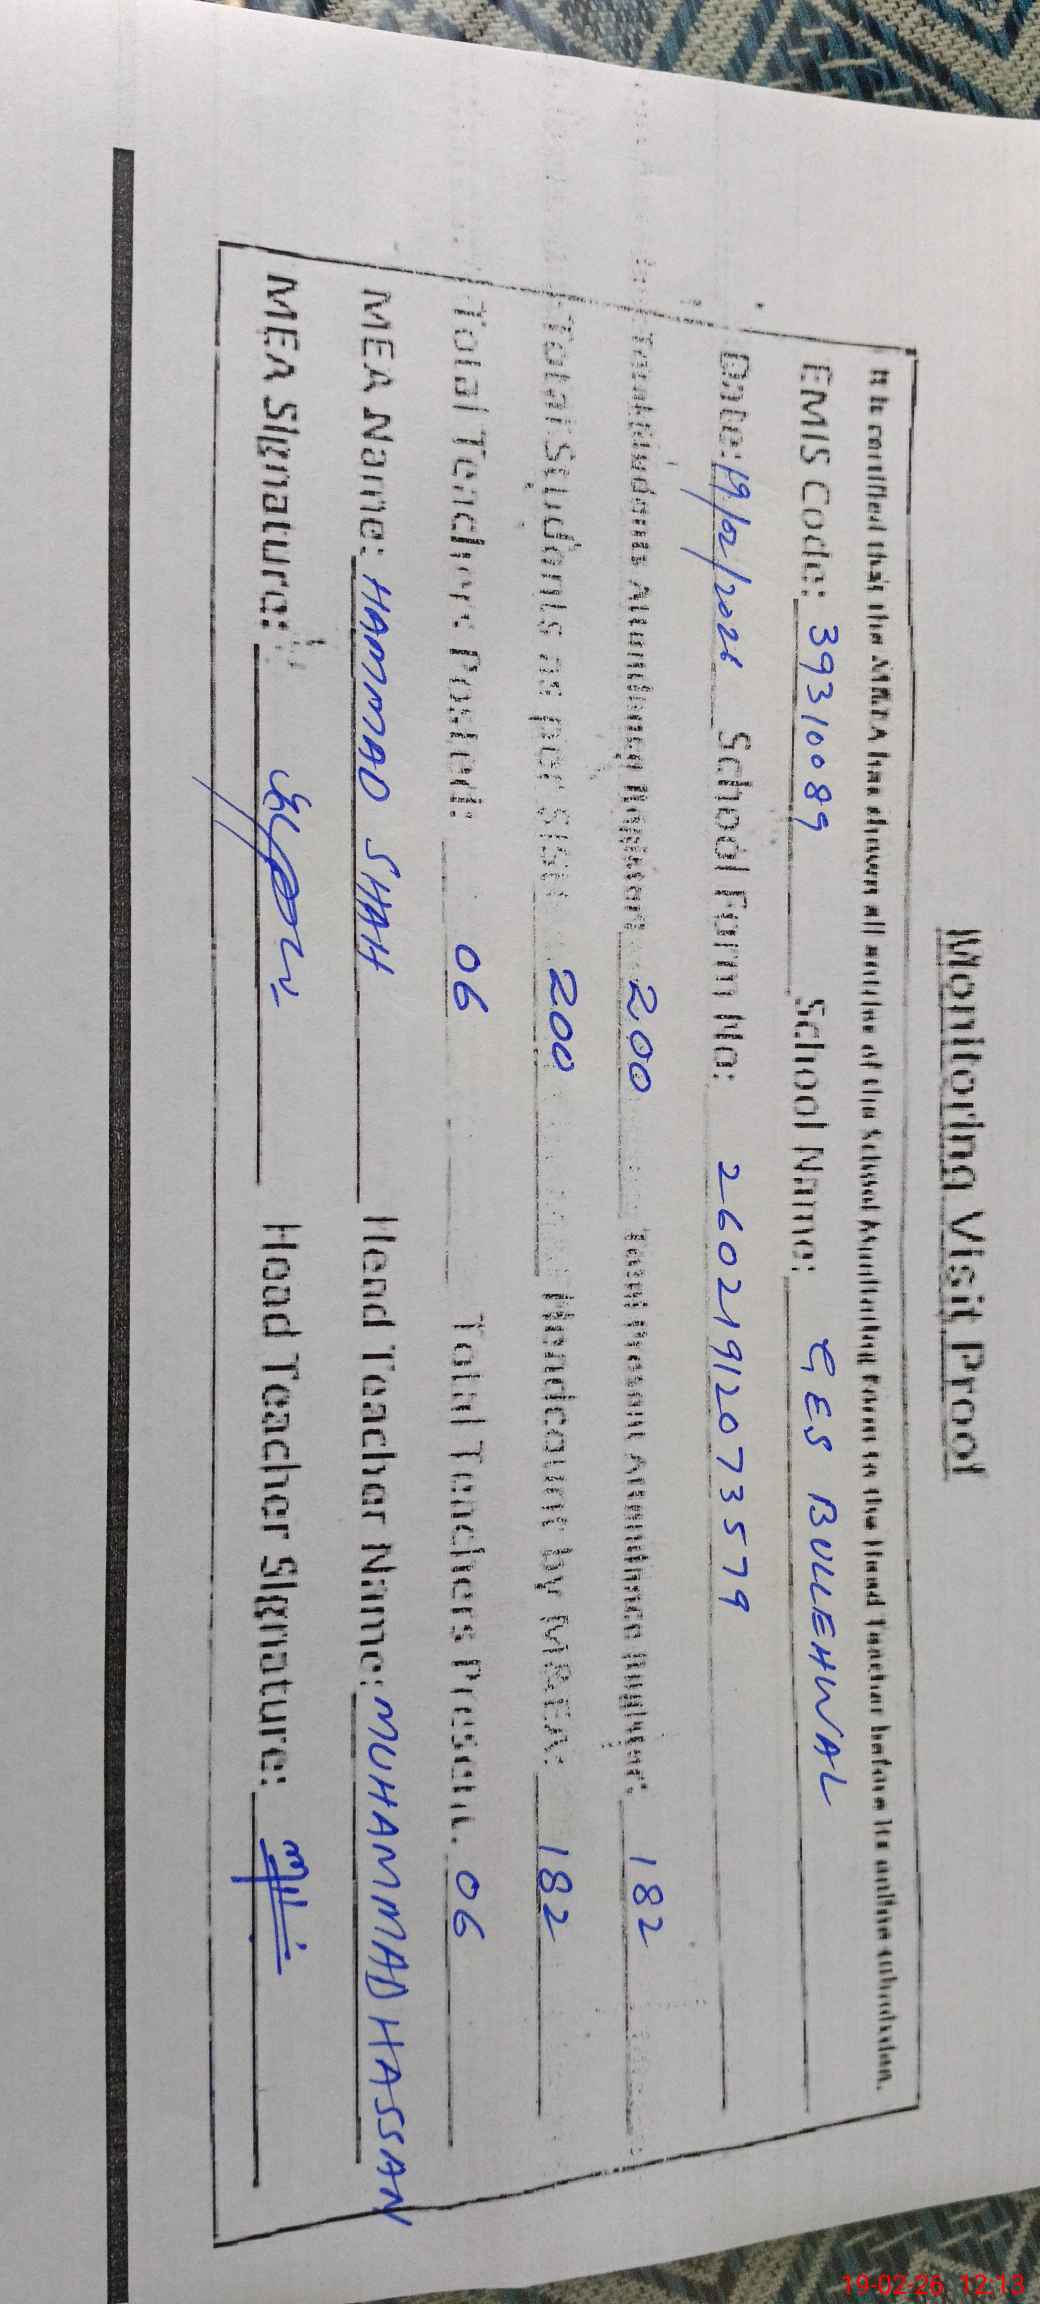 Monitoring Visit Proof
It is certified that the M&EA has shown all entries of the School Monitoring Form to the Head Teacher before its online submission.
EMIS Code: 39310089 School Name: GES BULLEHWAL
Date: 19/02/2026 School Form No: 26021912073579
Total Students Attendance Register: 200 Total Present Attendance Register: 182
Total Students as per SIS: 200 Headcount by M&EA: 182
Total Teachers Posted: 06 Total Teachers Present: 06
MEA Name: HAMMAD SHAH Head Teacher Name: MUHAMMAD HASSAN
MEA Signature: Head Teacher Signature:
19-02-26 12:13